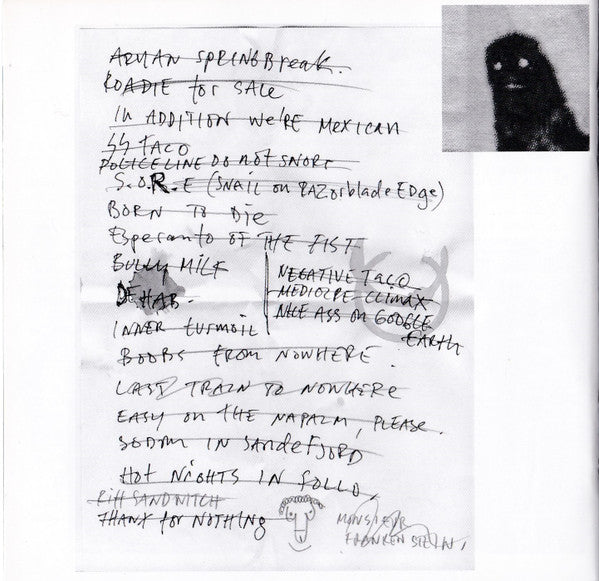 ARYAN SPRINGBreak.
ROADIE for SALE
IN ADDITION WE'RE MEXICAN
SS TACO
POLICELINE DO NOT SNORT
S.O.R.E (SNAIL ON RAZORBLADE EDGE)
BORN TO DIE
Esperanto OF THE FIST
BULLY MILF
DEHAB.
INNER turmoil
NEGATIVE TACO
MEDIOCRE CLIMAX
NICE ASS ON GOOGLE
EARTH
BOOBS FROM NOWHERE.
LAST TRAIN TO NOWHERE
EASY ON THE NAPALM, PLEASE.
SODOM IN SANDEFJORD
HOT NIGHTS IN FOLLO.
RIFF SANDWITCH
THANX for NOTHING
MONSIEUR
FRANKENSTEIN.